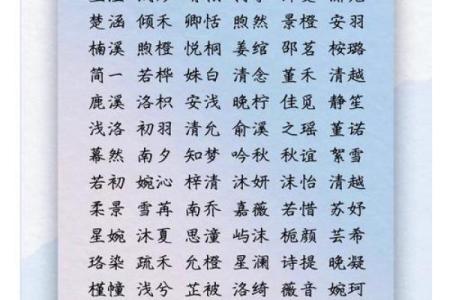 楚涵 倾禾 卿恬 煦然 景橙 安羽
楠溪 煦橙 悦桐 姜绾 邵茗 桉璐
简一 若桦 姝白 清念 董禾 清越
鹿溪 洛枳 安浅 晚柠 佳觅 静笙
浅洛 初羽 清允 俞溪 之瑶 董诺
幕然 南夕 知梦 吟秋 秋谊 絮雪
若初 婉沁 梓清 沐妍 沫怡 清越
柔景 雪苒 南乔 嘉薇 若惜 苏妤
星婉 沐夏 思潼 屿沫 栀颜 芸希
珞染 疏禾 允橙 星澜 诗提 晚凝
槿幢 浅兮 芷被 洛绮 薇音 婉珂